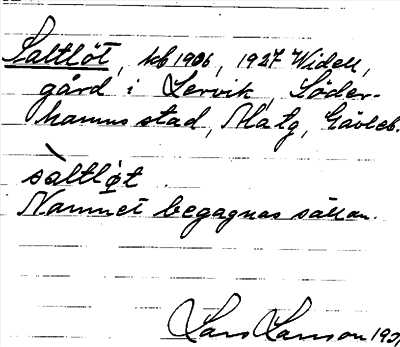 Saltlöt, kb 1906, 1927 Widell,
gård i Lervik, Söder-
hamns stad, Matg, Gävleb.
sàltlø̣t
Namnet begagnas sällan.
Lars Larsson